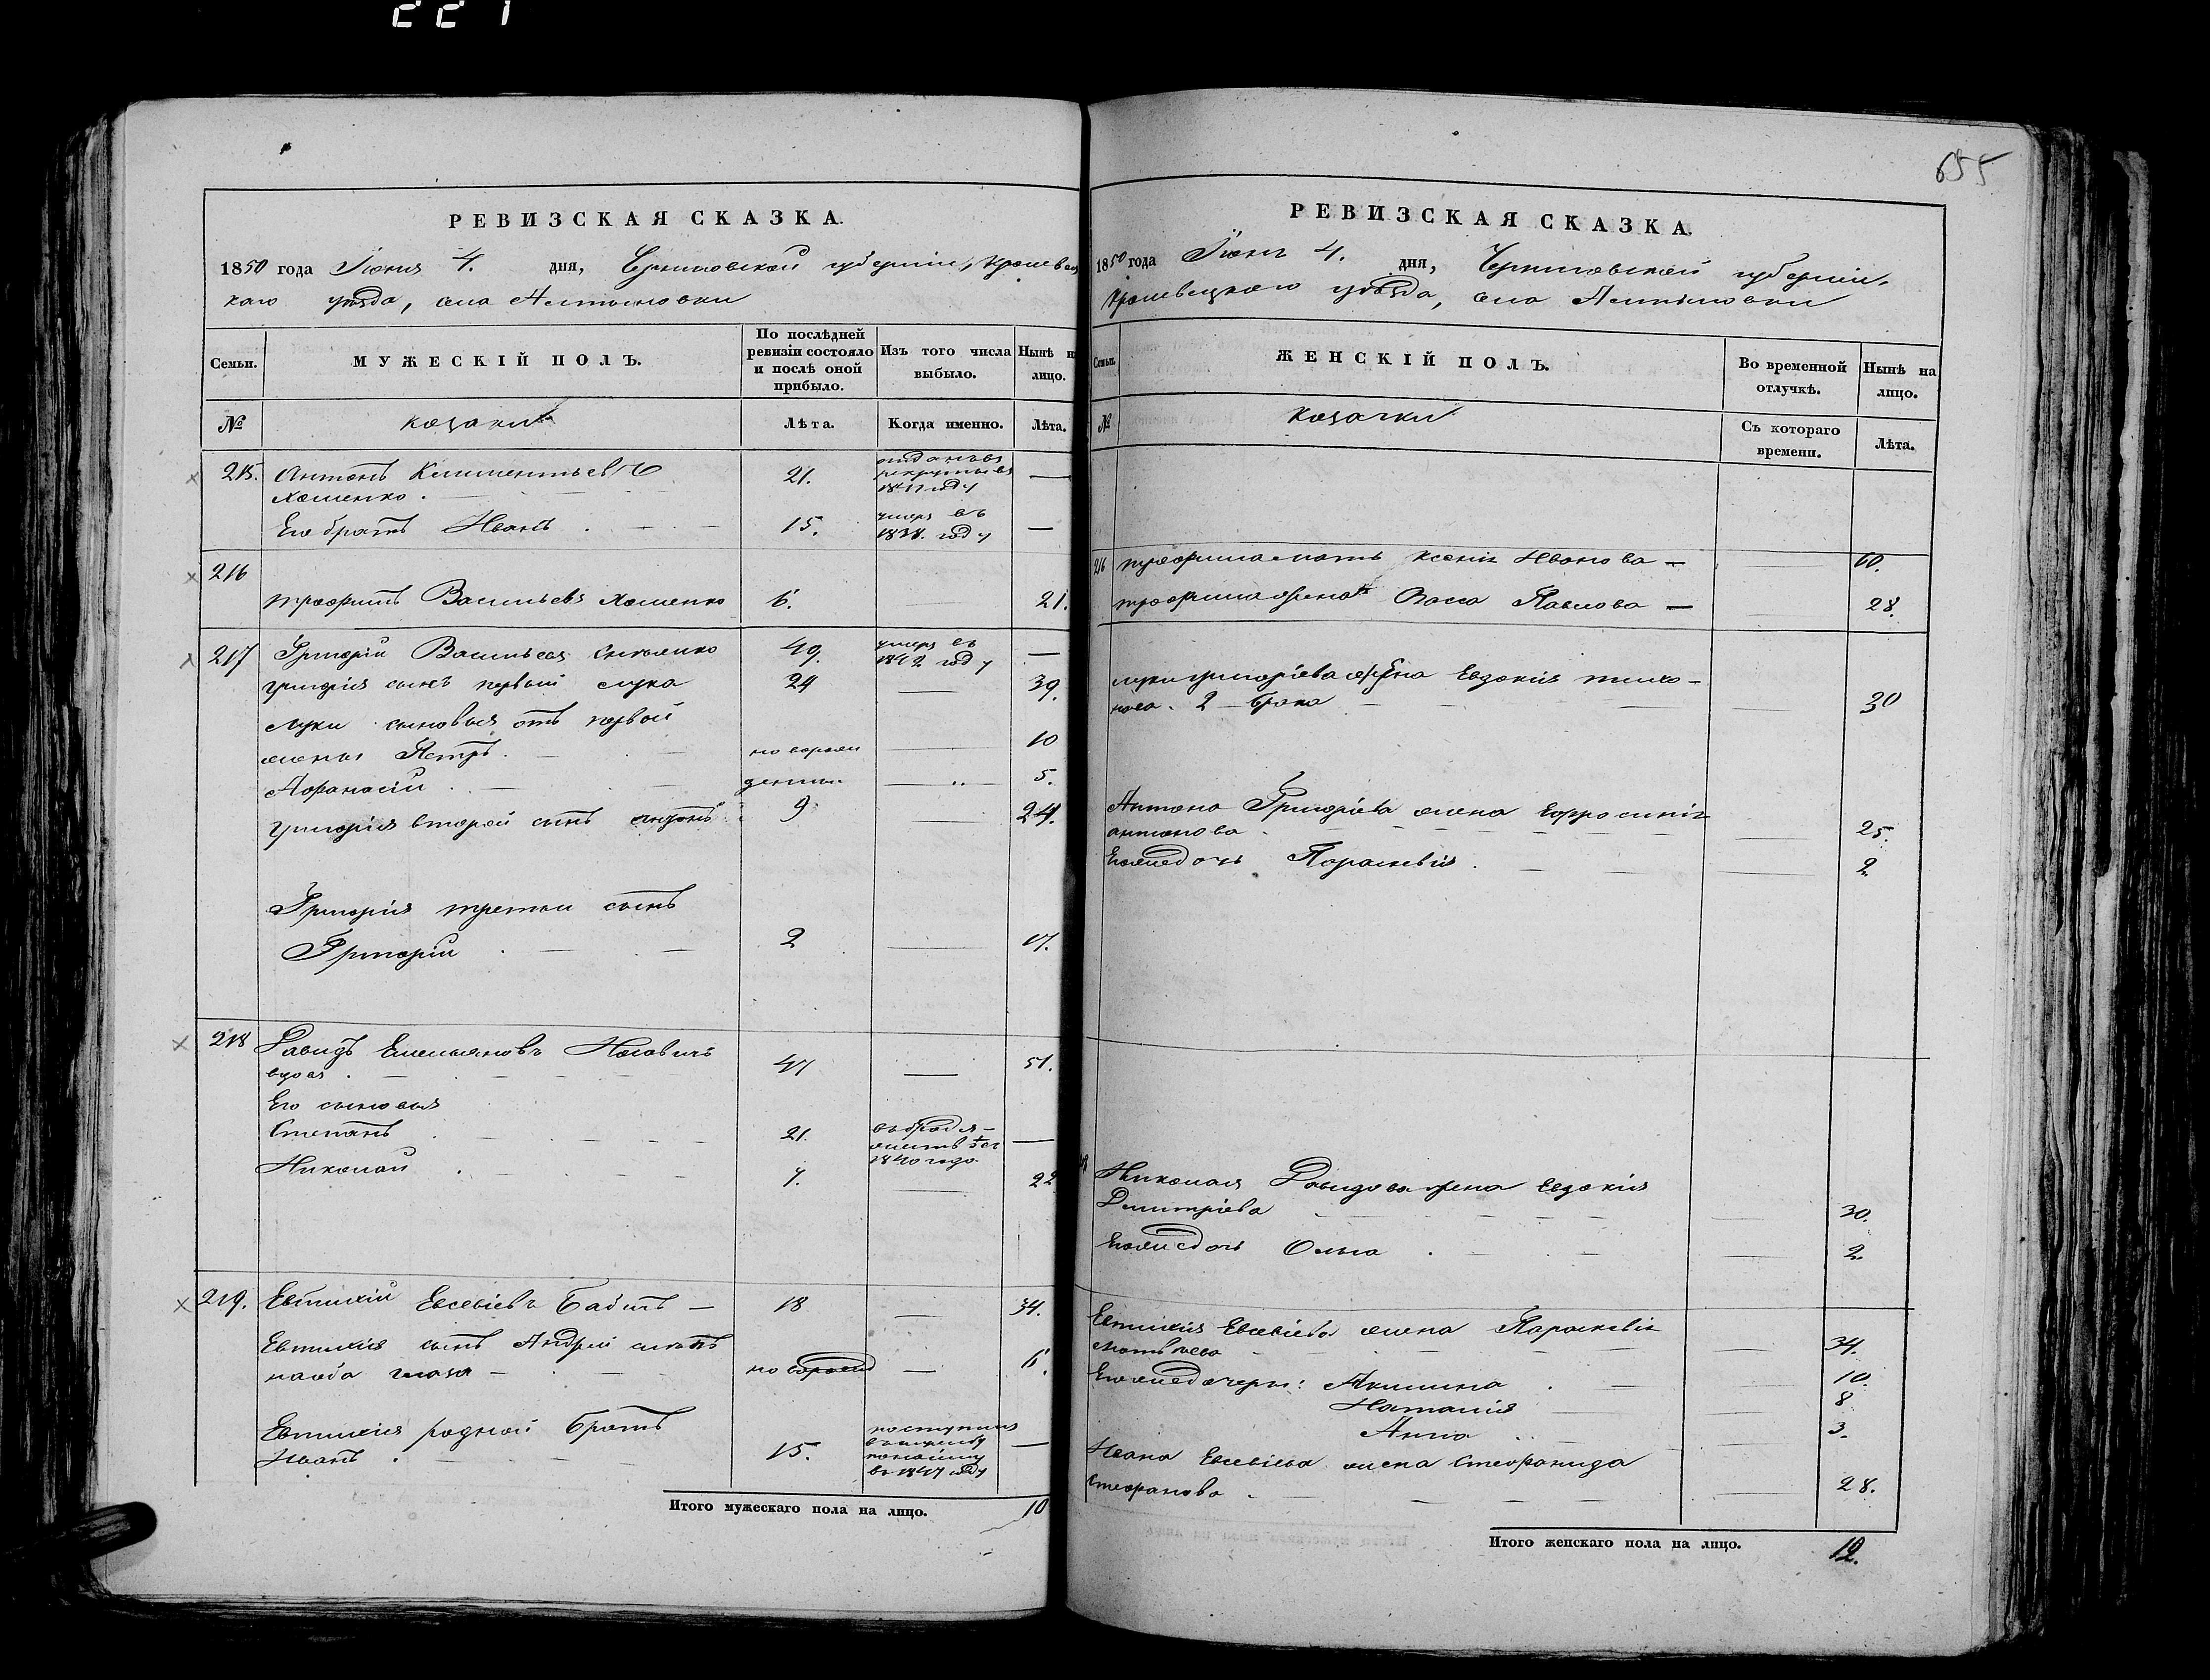 221
655
РЕВИЗСКАЯ СКАЗКА.
1850 года Июня 4. дня, Черниговской губерніи, Кролевец
каго уѣзда, села Алтыновки
Семьи.
МУЖЕСКІЙ ПОЛЪ.
По послѣдней ревизіи состояло и послѣ оной прибыло.
Изъ того числа выбыло.
Нынѣ на лицо.
№
козаки
Лѣта.
Когда именно.
Лѣта.
215. Антонъ Климентьевъ 21. отданъ въ —
Хоменко. рекруты въ
году
Его братъ Иванъ 15. умеръ въ —
1838. году
216
Трофимъ Васильевъ Хоменко 6. — 21.
217 Григорій Васильевъ 49. умеръ въ —
1842 году
Григорія сынъ первый Лука 24 — 39.
Луки сыновья отъ первой
жены Петръ. новорож — 10
Афанасій денные — 5.
Григорія второй сынъ Антонъ 9 — 24.
Григорія третій сынъ
Григорій 2 — 17.
218 Давидъ Емельяновъ 47 — 51.
вдовъ
Его сыновья
Степанъ 21. въ бродя —
жествѣ съ
1840 года
Николай 7. — 22
219. Евтихій Евсевіевъ Бабичъ — 18 — 34.
Евтихія сынъ Андрей слѣпъ
на оба глаза — новорожд — 6.
Евтихія родной братъ поступилъ
Иванъ 15. —
въ 1847 году
Итого мужескаго пола на лицо. 10
РЕВИЗСКАЯ СКАЗКА.
1850 года Июня 4. дня, Черниговской губерніи,
Кролевецкаго уѣзда, села Алтыновки
Семьи.
ЖЕНСКІЙ ПОЛЪ.
Во временной отлучкѣ.
Нынѣ на лицо.
№
козачки
Съ котораго времени.
Лѣта.
216 Трофима мать Ксенія Иванова — 60.
Трофима жена Васса Павлова — 28.
Луки Григоріева жена Евдокія Тихо-
нова. 2 брака — 30
Антона Григоріева жена Ефросинія
Антонова — 25.
Его же дочь Параскевія. — 2
Николая Давидова жена Евдокія
Дмитріева — 30.
Его же дочь Ольга — 2
Евтихія Евсевіева жена Параскевія
Матвѣева — 34.
Его же дочери: Акилина 10.
Наталія 8
Анна 3.
Ивана Евсевіева жена Стефанида
Стефанова — 28.
Итого женскаго пола на лицо. 12.